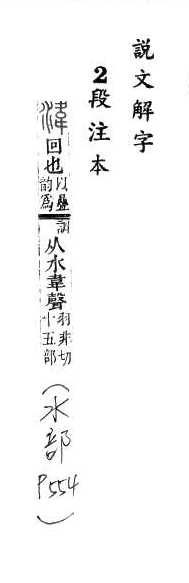 説文解字
2段注本
湋回也以疊韵爲訓从水韋聲羽非切十五部(水部P554)